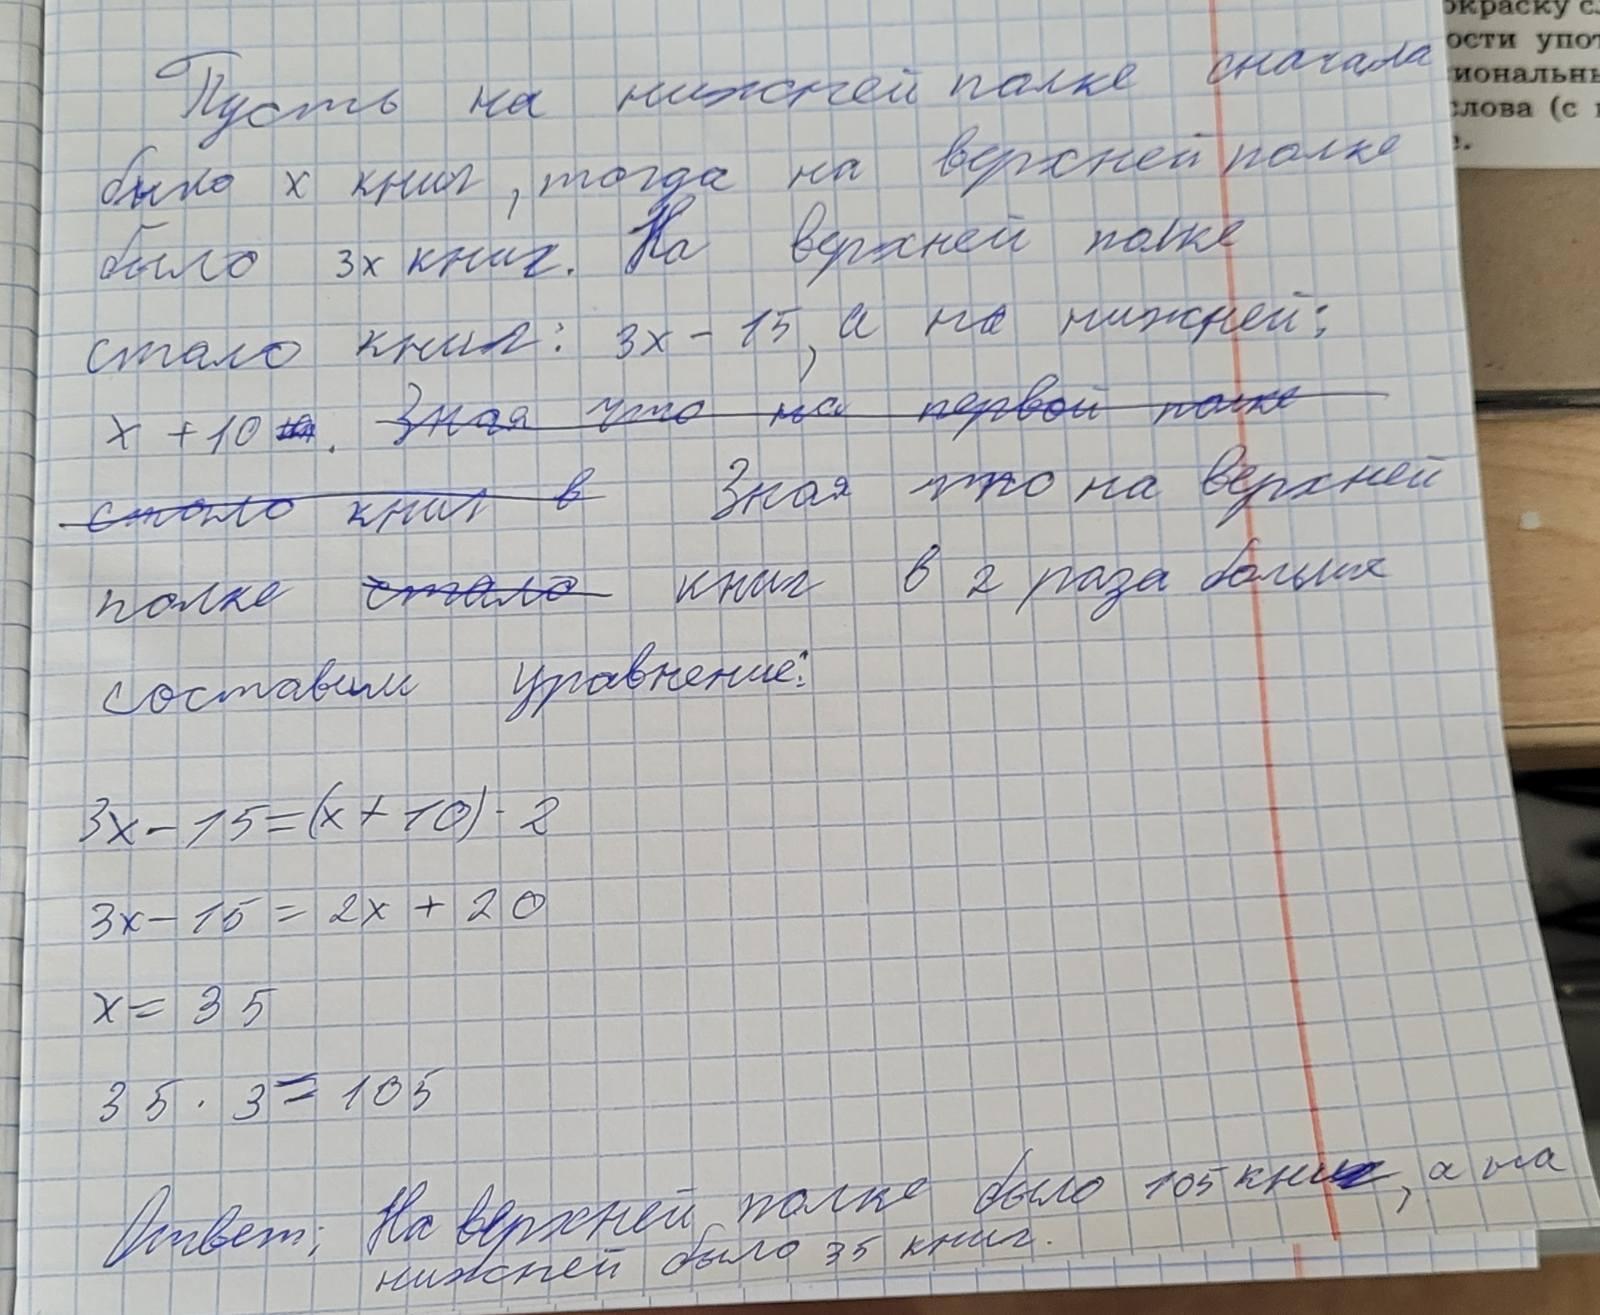 Пусть на нижней полке сначала
было x книг, тогда на верхней полке
было 3x книг. На верхней полке
стало книг: 3x - 15, а на нижней:
x + 10. Зная что на первой полке
стало книг в Зная что на верхней
полке стало книг в 2 раза больше
составим уравнение:
3x - 15 = (x + 10) · 2
3x - 15 = 2x + 20
x = 35
35 · 3 = 105
Ответ: На верхней полке было 105 книг, а на
нижней было 35 книг.
окраску
ости
слова (с